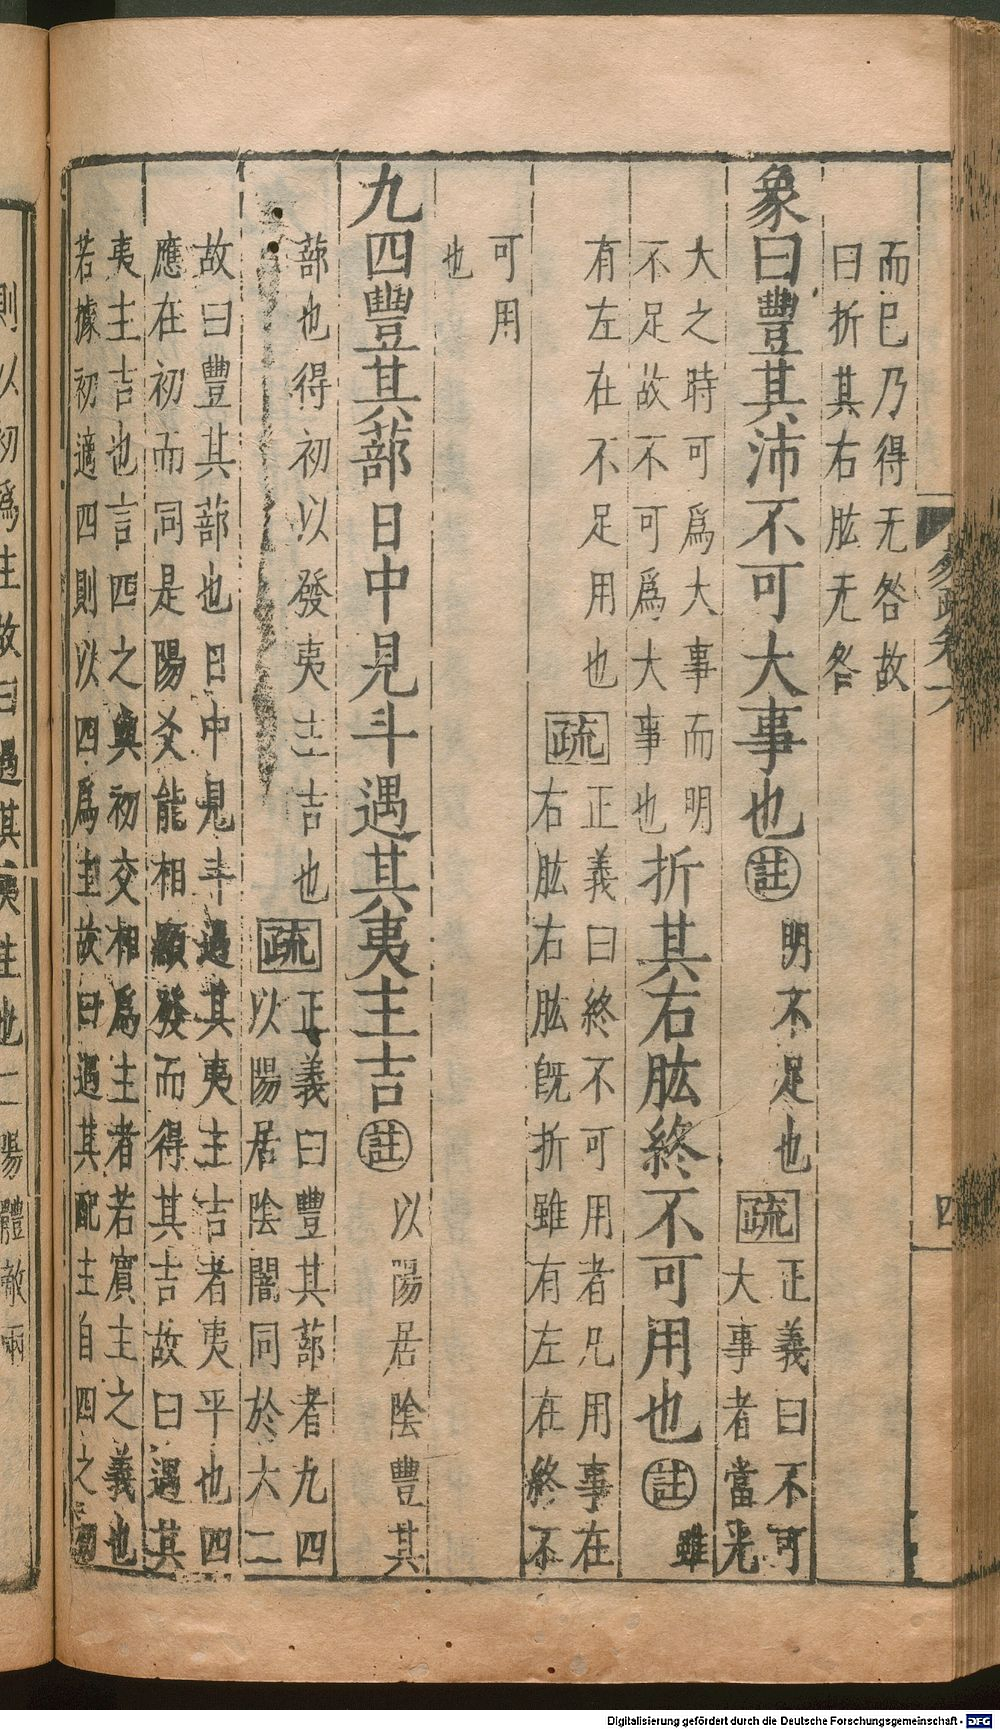 易疏卷六
四
而已乃得无咎故
曰折其右肱无咎
象曰豐其沛不可大事也註明不足也疏正義曰不可
大事者當光
大之時可爲大事而明
不足故不可爲大事也折其右肱終不可用也註雖
有左在不足用也疏正義曰終不可用者凡用事在
右肱右肱旣折雖有左在終不
可用
也
九四豐其蔀日中見斗遇其夷主吉註以陽居陰豐其
蔀也得初以發夷主吉也疏正義曰豐其蔀者九四
以陽居陰闇同於六二
故曰豐其蔀也日中見斗遇其夷主吉者夷平也四
應在初而同是陽爻能相顯發而得其吉故曰遇其
夷主吉也言四之與初交相爲主者若賓主之義也
若據初適四則以四爲主故曰遇其配主自四之初
則以初爲主故曰遇其夷主也二陽體敵兩
Digitalisierung gefördert durch die Deutsche Forschungsgemeinschaft - DFG